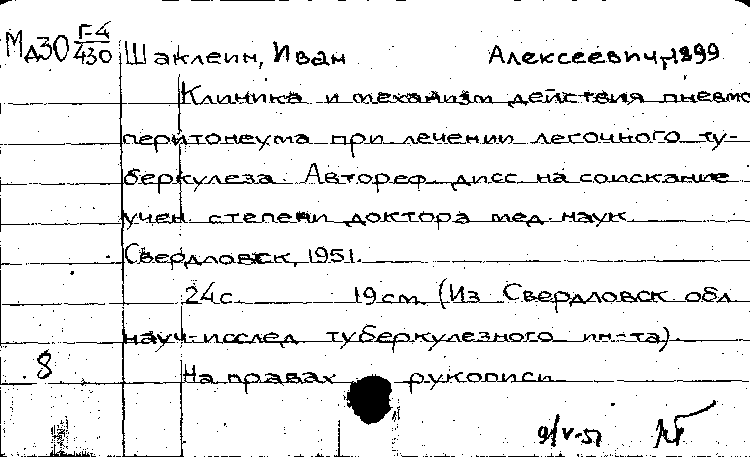 Мд30 Г-4/430 Шаклеин, Иван Алексеевич, 1899
Клиника и механизм действия пневмо
перитонеума при лечении легочного ту-
беркулеза. Автореф. дисс. на соискание
учен. степени доктора мед. наук.
Свердловск, 1951.
24с. 19см. (Из Свердловск. обл.
науч.-исслед. туберкулезного ин-та).
8 На правах рукописи
9/V-51